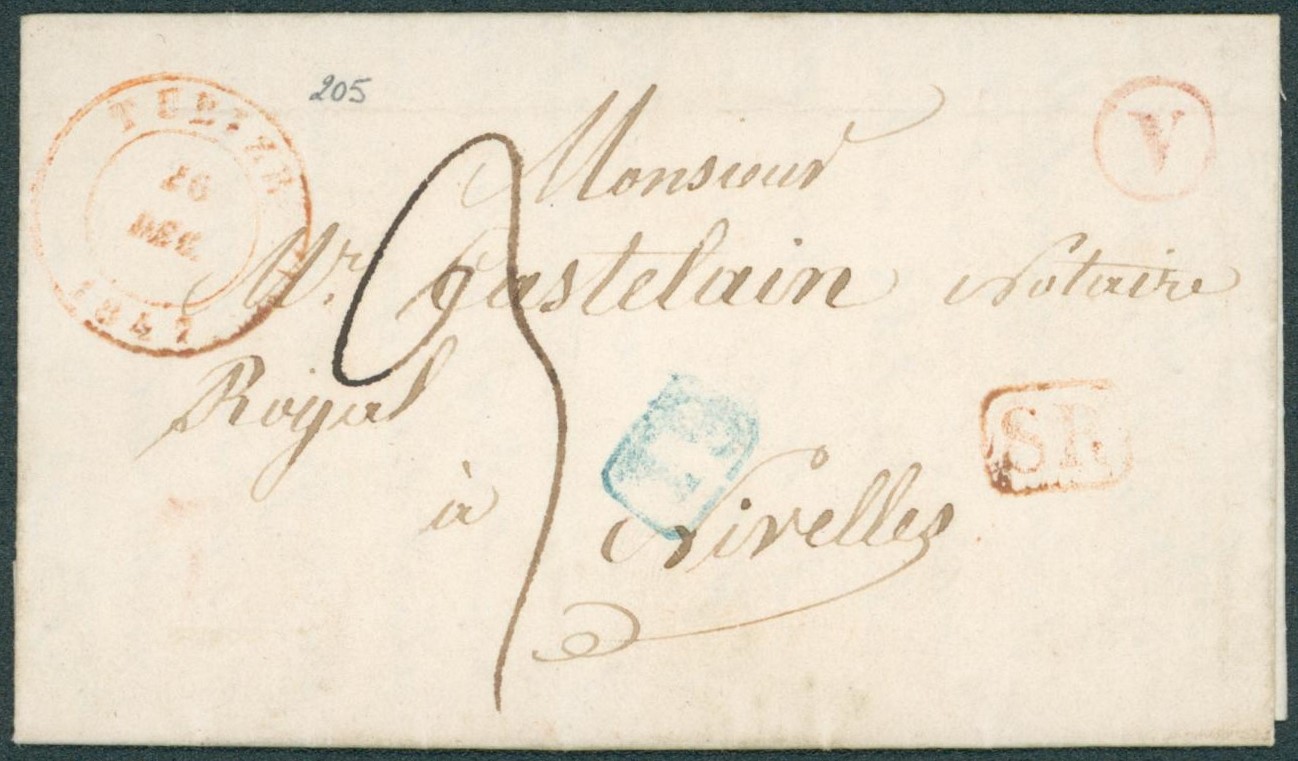 205
TUBIZE
26
DEC.
1847
V
Monsieur
Mr. Castelain Notaire
Royal
SR
à Nivelles